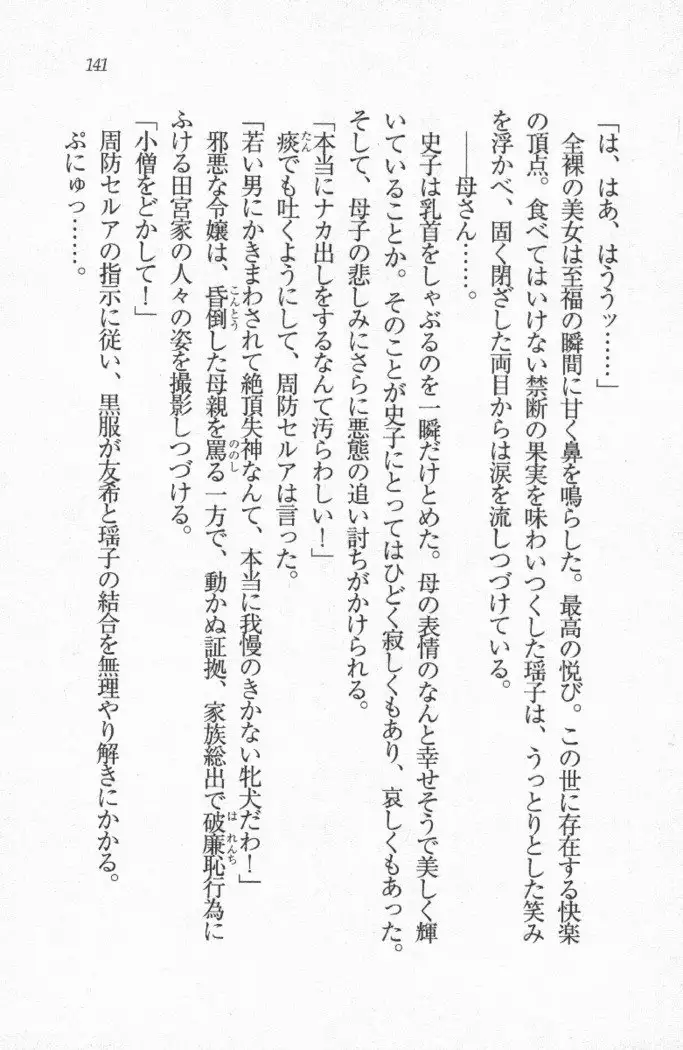 141
「は、はあ、はううッ……」
全裸の美女は至福の瞬間に甘く鼻を鳴らした。最高の悦び。この世に存在する快楽
の頂点。食べてはいけない禁断の果実を味わいつくした瑶子は、うっとりとした笑み
を浮かべ、固く閉ざした両目からは涙を流しつづけている。
――母さん……。
史子は乳首をしゃぶるのを一瞬だけとめた。母の表情のなんと幸せそうで美しく輝
いていることか。そのことが史子にとってはひどく寂しくもあり、哀しくもあった。
そして、母子の悲しみにさらに悪態の追い討ちがかけられる。
「本当にナカ出しをするなんて汚らわしい！」
痰でも吐くようにして、周防セルアは言った。
「若い男にかきまわされて絶頂失神なんて、本当に我慢のきかない牝犬だわ！」
邪悪な令嬢は、昏倒した母親を罵る一方で、動かぬ証拠、家族総出で破廉恥行為に
ふける田宮家の人々の姿を撮影しつづける。
「小僧をどかして！」
周防セルアの指示に従い、黒服が友希と瑶子の結合を無理やり解きにかかる。
ぷにゅっ……。